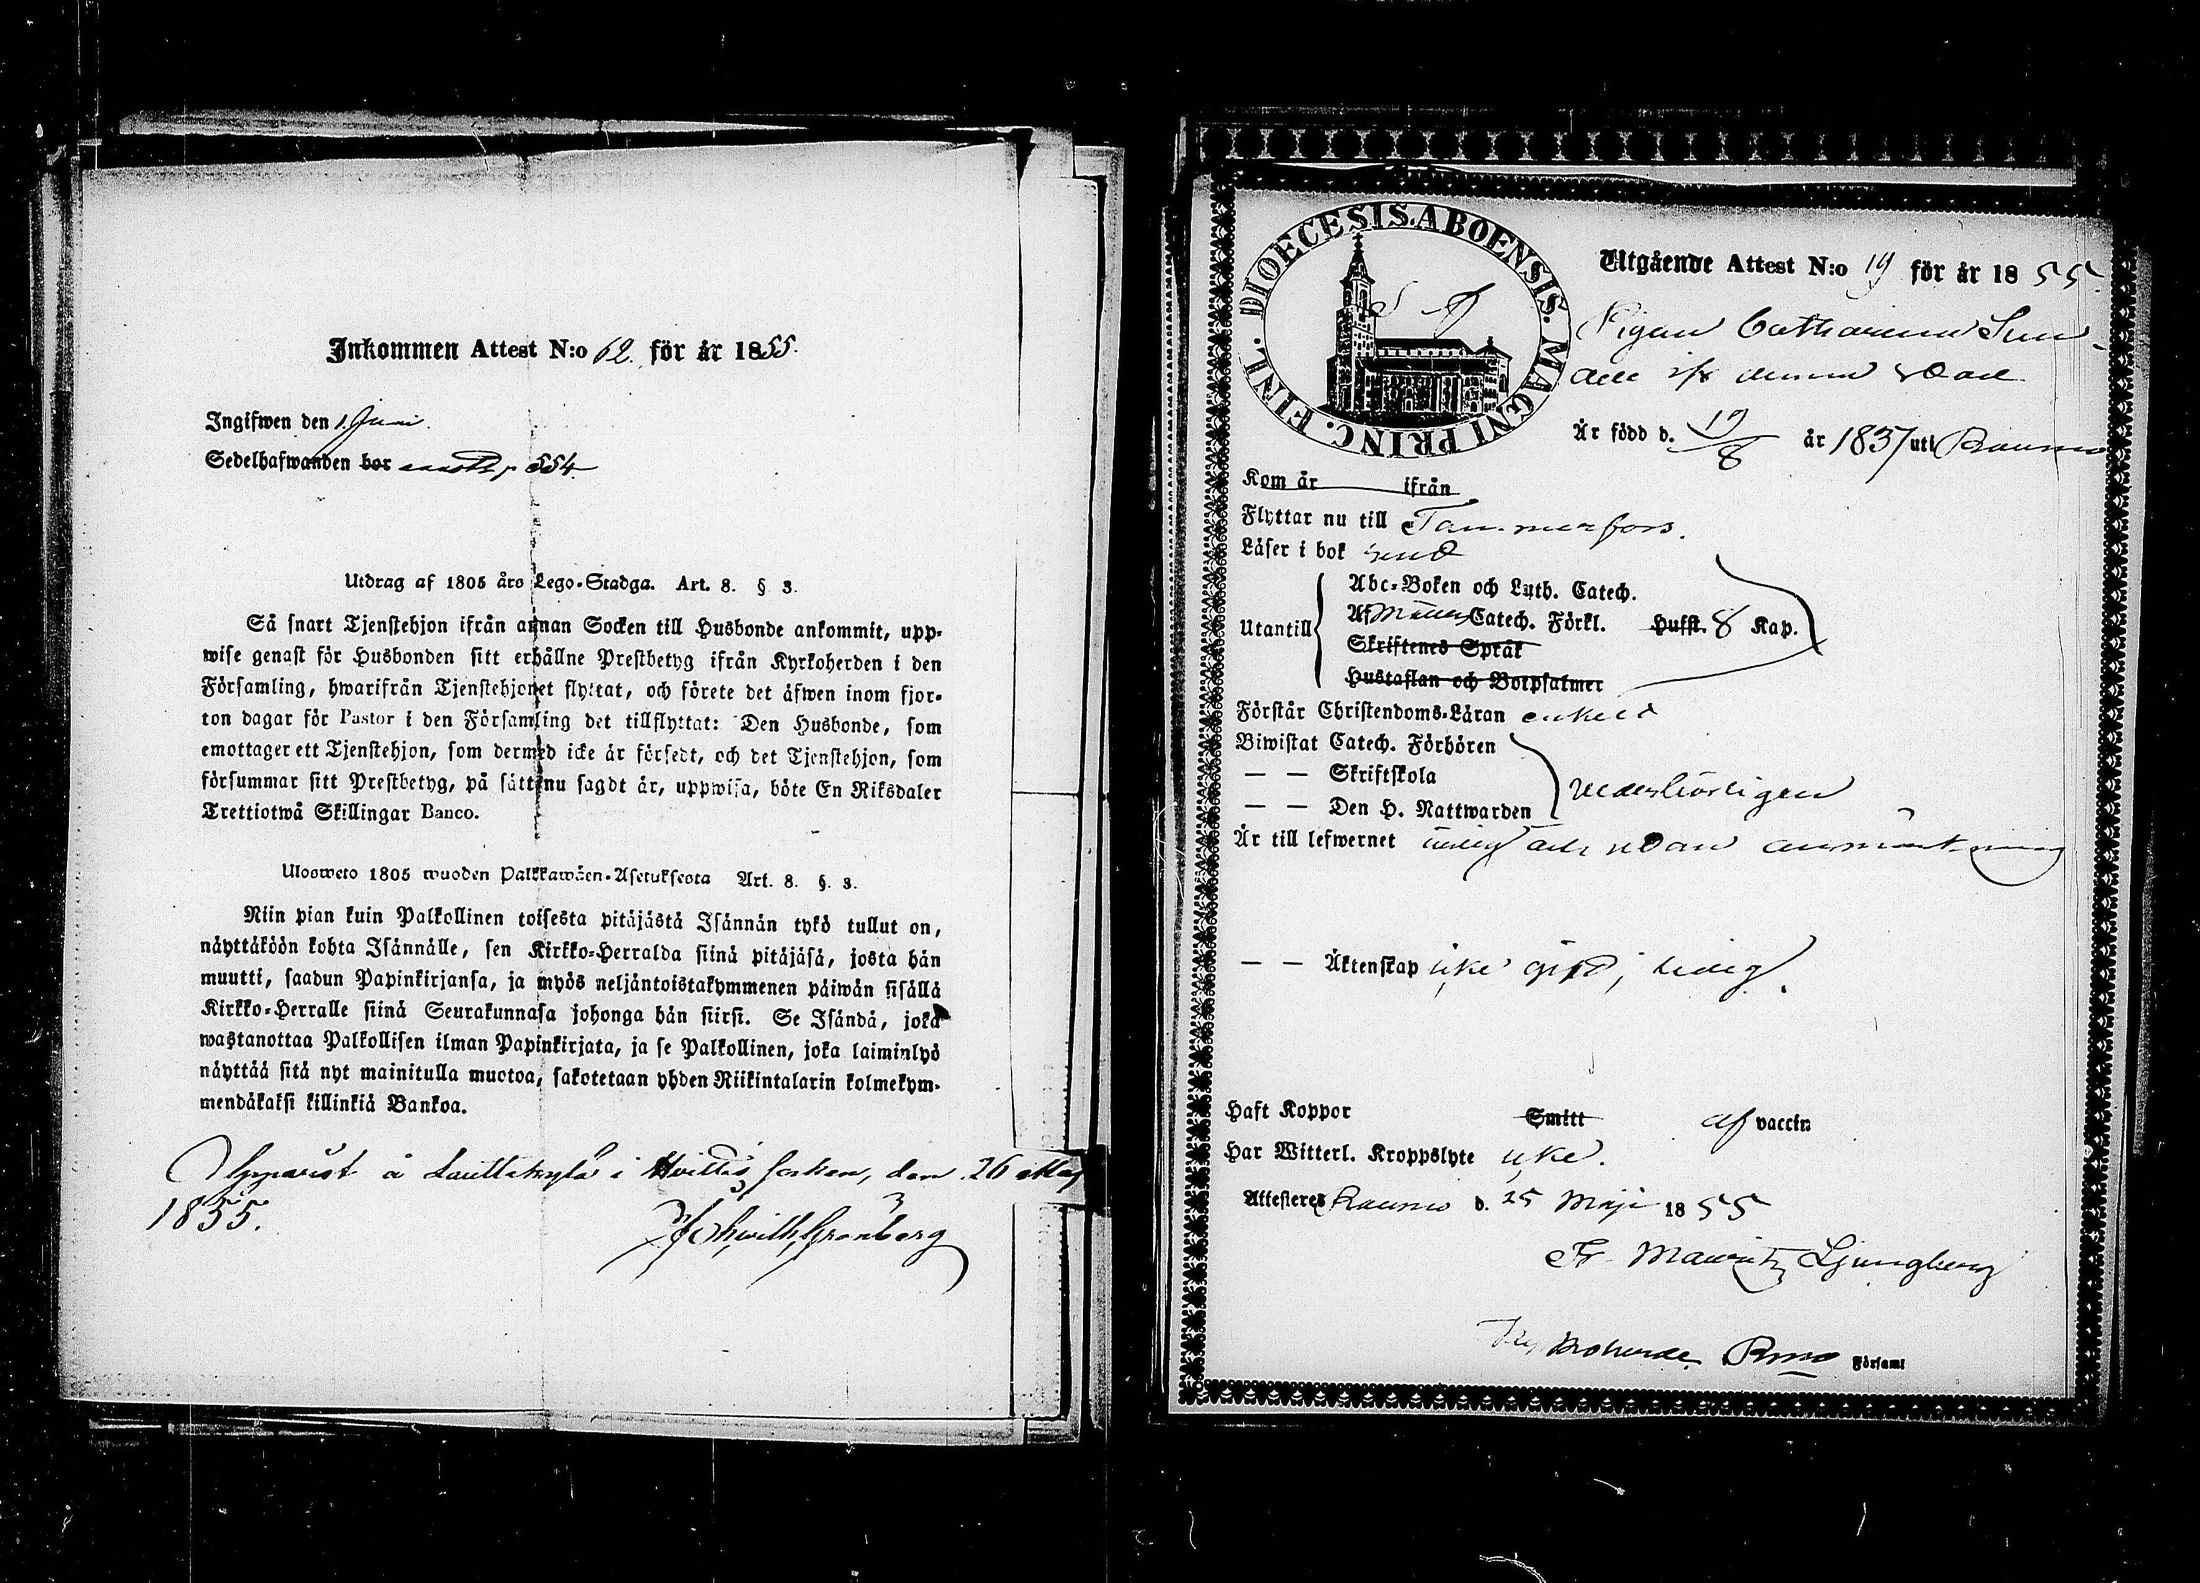 Inkommen Attest N:o 62. för år 1855.
Ingifwen den 1. Juni.
Sedelhafwanden bor p. 554
Utdrag af 1805 års Lego-Stadga. Art. 8. § 3.
Så snart Tjenstehjon ifrån annan Socken till Husbonde ankommit, upp-
wise genast för Husbonden sitt erhållne Prestbetyg ifrån Kyrkoherden i den
Församling, hwarifrån Tjenstehjonet flyttat, och förete det äfwen inom fjor-
ton dagar för Pastor i den Församling det tillflyttat: Den Husbonde, som
emottager ett Tjenstehjon, som dermed icke är försedt, och det Tjenstehjon, som
försummar sitt Prestbetyg, på sätt nu sagdt är, uppwisa, böte En Riksdaler
Trettiotwå Skillingar Banco.
Ulosweto 1805 wuoden Palkkawäen-Asetuksesta Art. 8. §. 3.
Niin pian kuin Palkollinen toisesta pitäjästä Isännän tykö tullut on,
näyttäköön kohta Isännälle, sen Kirkko-Herralda siinä pitäjäsä, josta hän
muutti, saadun Papinkirjansa, ja myös neljäntoistakymmenen päiwän sisällä
Kirkko-Herralle siinä Seurakunnasa johonga hän siirsi. Se Isändä, joka
wastanottaa Palkollisen ilman Papinkirjata, ja se Palkollinen, joka laiminlyö
näyttää sitä nyt mainitulla muotoa, sakotetaan yhden Riikintalarin kolmekym-
mendäkaksi killinkiä Bankoa.
Uppvist å Lauttakylä i Hvittis socken, den 26 Maj
1855.
Grönberg
DIOECESIS. ABOENSIS. MAGNI PRINC. FINL.
Utgående Attest N:o 19 för år 1855.
Pigan Catharina Sun-
dell ifr denna stad
Är född d. 19/8 år 1837 uti Raumo
Kom år ifrån
Flyttar nu till Tammerfors.
Läser i bok
Utantill
Abc-Boken och Luth. Catech.
Af Möllers Catech. Förkl. Hufst. 8 Kap.
Skriftenes Språk
Hustaflan och Botpsalmer
Förstår Christendoms-Läran enkelt
Biwistat Catech. Förhören
— — Skriftskola
— — Den H. Nattwarden
vederbörligen
Är till lefwernet ärlig och utan anmärkning
— — Äktenskap icke gift; ledig.
Haft Koppor Smitt af vaccin
Har Witterl. Kroppslyte icke.
Attesteres Raumo d. 25 Maji 1855
Fr. Mauritz Ljungberg
Kyrkoherde Rmo Församl